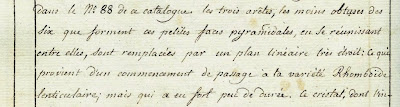 dans le N.º 88 de ce catalogue les trois arêtes, les moins obtuses des
six que forment ces petites faces pyramidales, en se réunissant
entre elles, sont remplacées par un plan linéaire très étroit; ce qui
provient d'un commencement de passage à la variété Rhomboïde
lenticulaire; mais qui a eu fort peu de durée. Ce cristal, dont